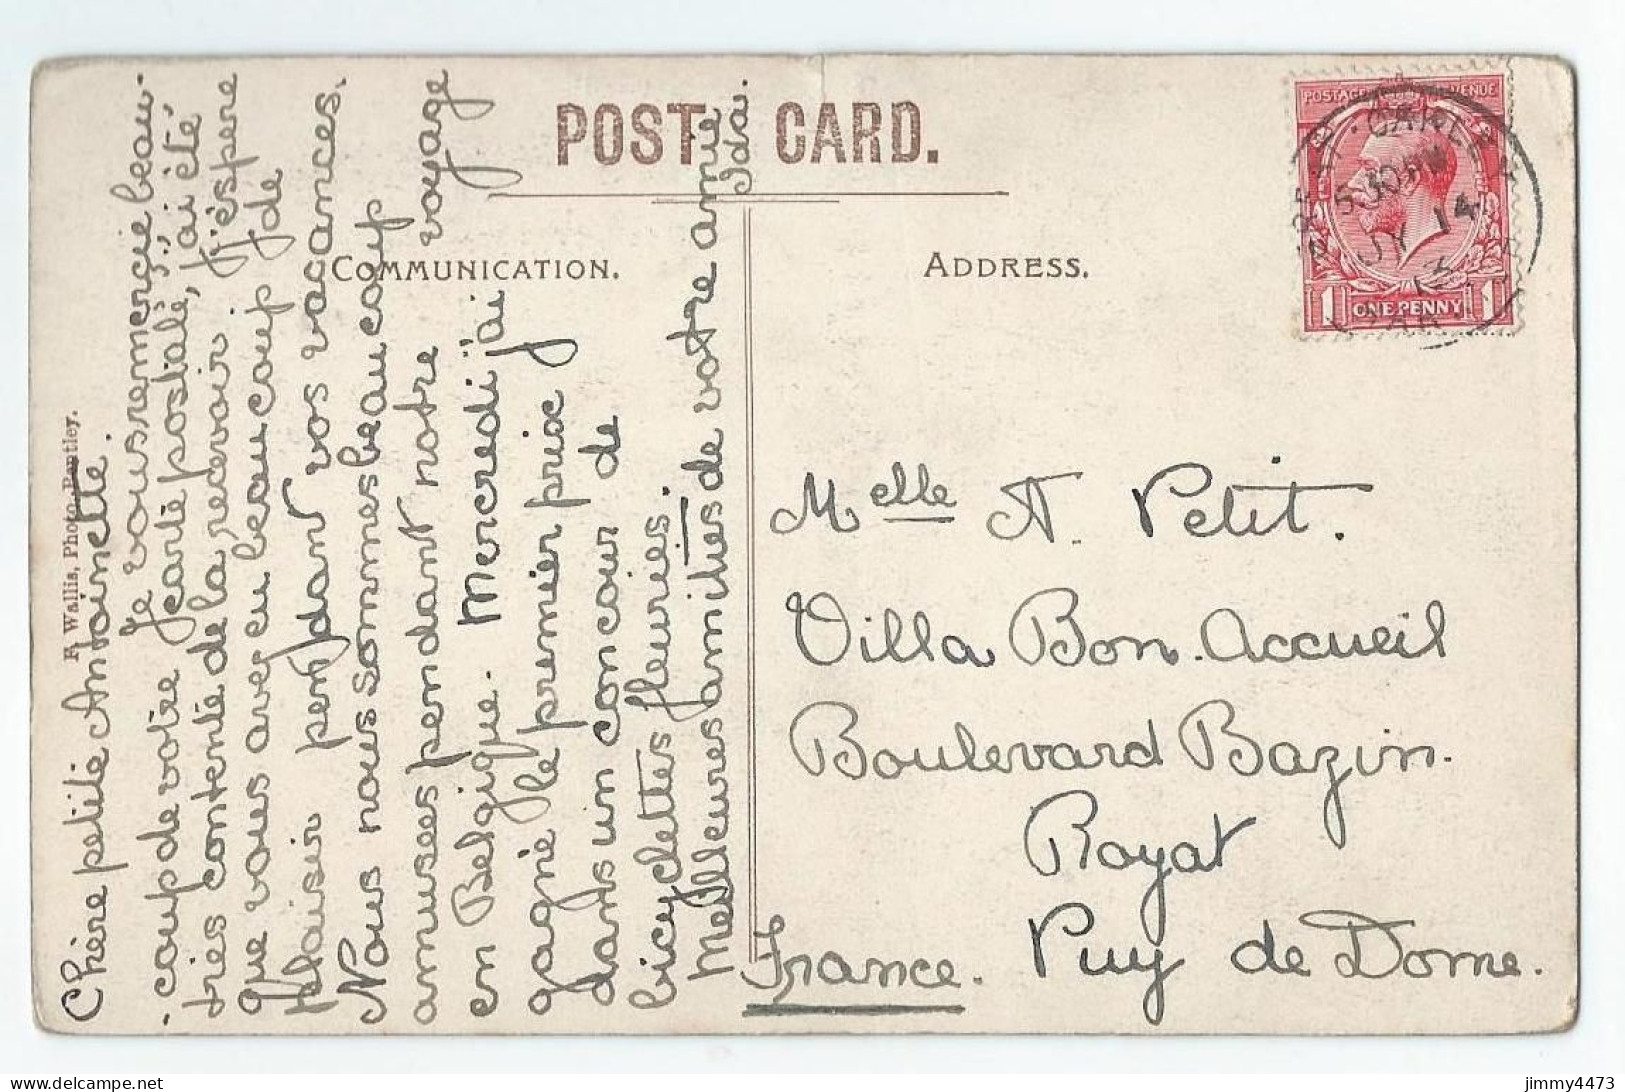 POST CARD.
COMMUNICATION.
ADDRESS.
F. Wallis, Photo, Bentley.
Chère petite Antoinette.
Je vous remercie beau-
-coup de votre carte postale, j'ai été
très contente de la recevoir. J'éspere
que vous avez eu beaucoup de
plaisir pendant vos vacances.
Nous nous sommes beaucoup
amusées pendant notre voyage
en Belgique. Mercredi j'ai
gagné le premier prix
dans un concour de
bicyclettes fleuries.
Meilleures amitiés de votre amie
Ida.
Melle A. Petit.
Villa Bon. Accueil
Boulevard Bazin.
Royat
Puy de Dome.
France.
POSTAGE REVENUE
ONE PENNY
1 1
JY 14
jimmy4473